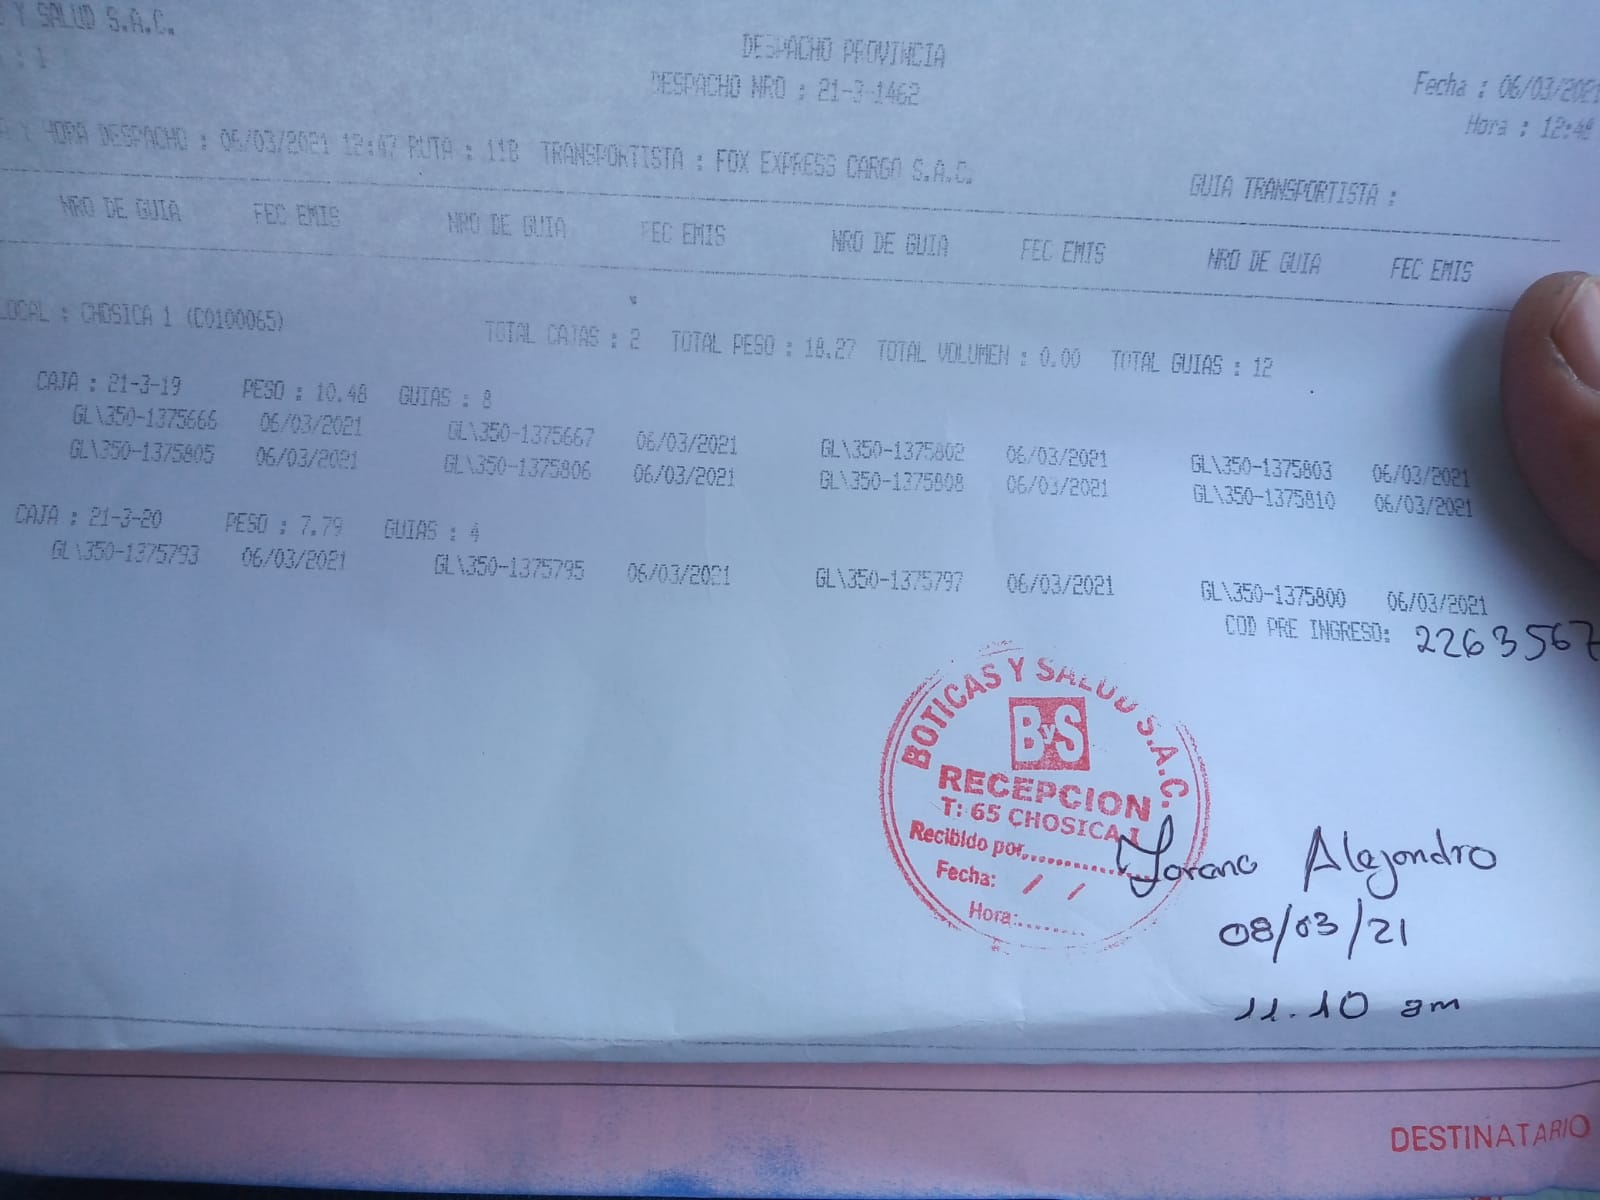 Y SALUD S.A.C.
: 1
DESPACHO PROVINCIA
DESPACHO NRO : 21-3-1462
Fecha : 06/03/2021
Hora : 12:48
Y HORA DESPACHO : 06/03/2021 12:47 RUTA : 11B TRANSPORTISTA : FOX EXPRESS CARGO S.A.C.
GUIA TRANSPORTISTA :
NRO DE GUIA FEC EMIS NRO DE GUIA FEC EMIS NRO DE GUIA FEC EMIS NRO DE GUIA FEC EMIS
LOCAL : CHOSICA 1 (C0100065) TOTAL CAJAS : 2 TOTAL PESO : 18.27 TOTAL VOLUMEN : 0.00 TOTAL GUIAS : 12
CAJA : 21-3-19 PESO : 10.48 GUIAS : 8
GL\350-1375666 06/03/2021 GL\350-1375667 06/03/2021 GL\350-1375802 06/03/2021 GL\350-1375803 06/03/2021
GL\350-1375805 06/03/2021 GL\350-1375806 06/03/2021 GL\350-1375808 06/03/2021 GL\350-1375810 06/03/2021
CAJA : 21-3-20 PESO : 7.79 GUIAS : 4
GL\350-1375793 06/03/2021 GL\350-1375795 06/03/2021 GL\350-1375797 06/03/2021 GL\350-1375800 06/03/2021
COD PRE INGRESO: 2263567
BOTICAS Y SALUD S.A.C.
ByS
RECEPCION
T: 65 CHOSICA 1
Recibido por
Fecha: / /
Hora:
Alejandro
08/03/21
11.10 am
DESTINATARIO